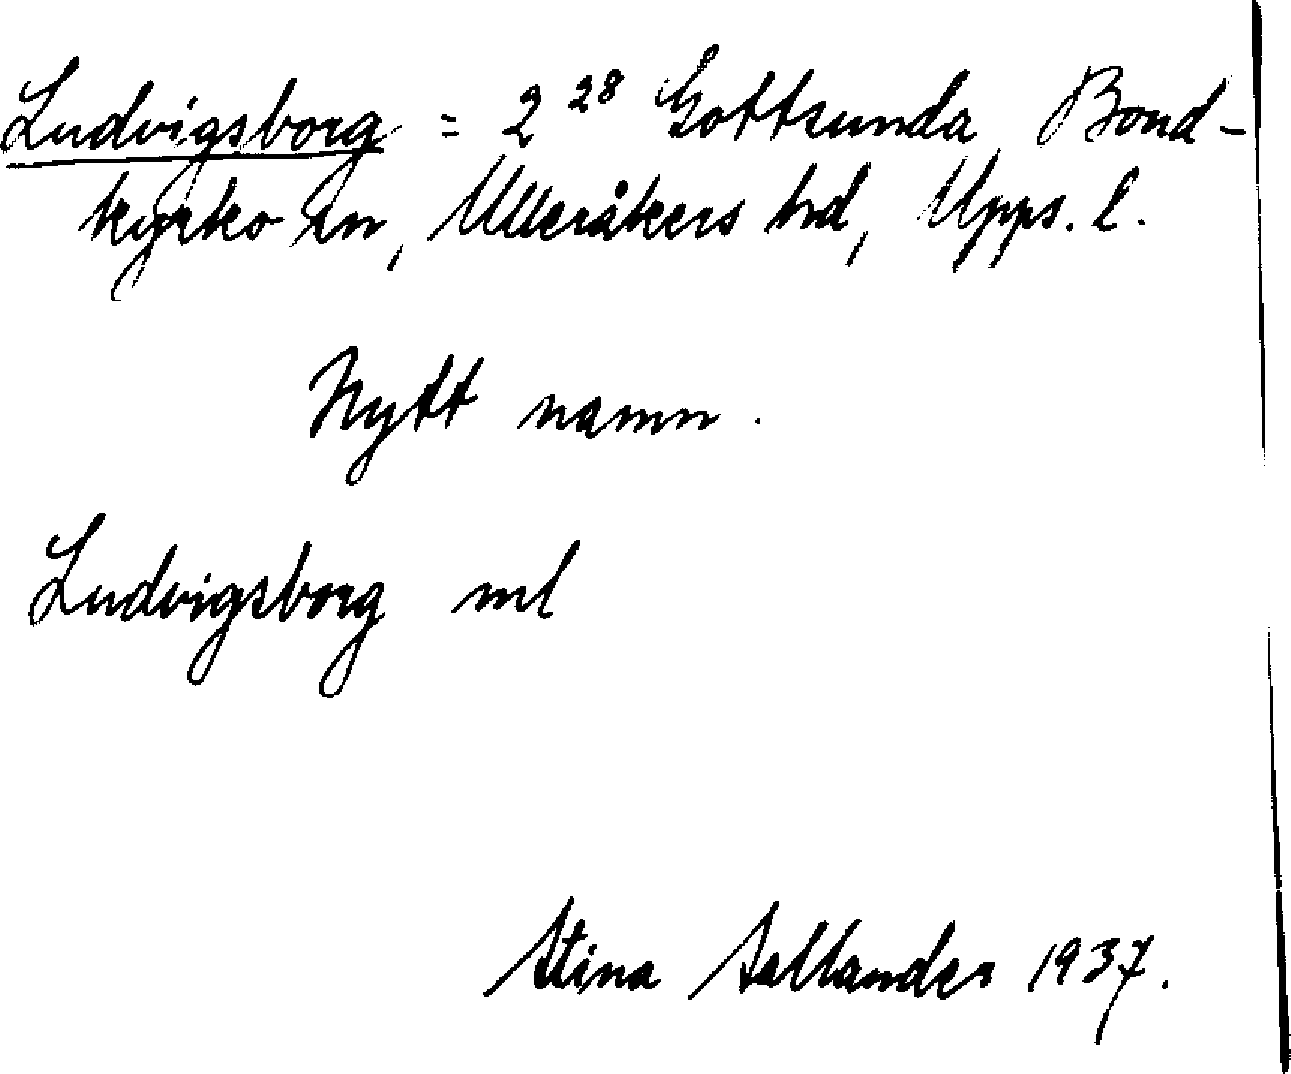 Ludvigsborg = 2 28 Gottsunda, Bond-
kyrko sn, Ulleråkers hd, Upps. l.
Nytt namn.
Ludvigsborg ml
Stina Sellander 1937.